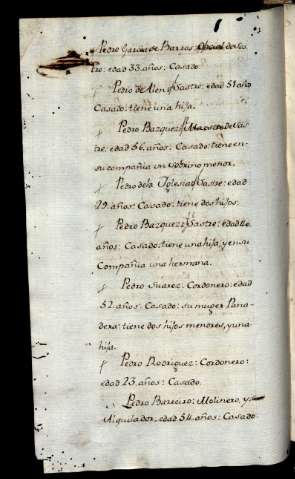 Pedro Garcia de Barros Oficial de Sas
tre: edad 33. años: Casado.
Pedro de Alen Sastre: edad 51 año
Casado: tiene una hija.
Pedro Bazquez Maestro de Sas
tre: edad 56. años: Casado: tiene en
su compañia un Sobrino menor.
Pedro de la Yglesia Sastre: edad
29. años: Casado: tiene dos hijos.
Pedro Bazquez Sastre: edad
años: Casado: tiene una hija, y en su
Compañia una hermana.
Pedro Suarez: Cordonero: edad
52. años: Casado: su muger Pana-
dera: tiene dos hijos menores, y una
hija.
Pedro Rodriguez: Cordonero:
edad 23. años: Casado.
Pedro Barreiro: Molinero, y
Alquilador: edad 54. años: Casado